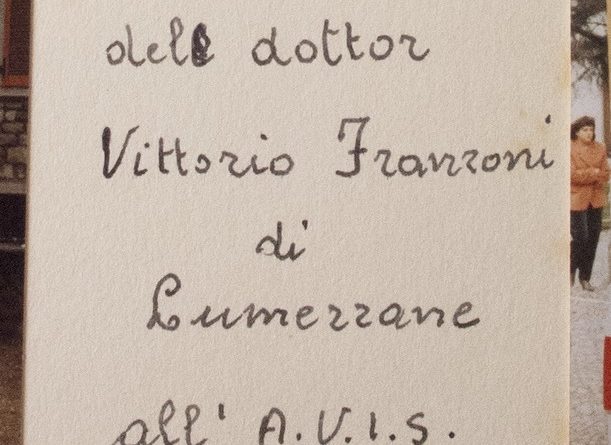 del dottor
Vittorio Franzoni
di
Lumezzane
all' A.V.I.S.